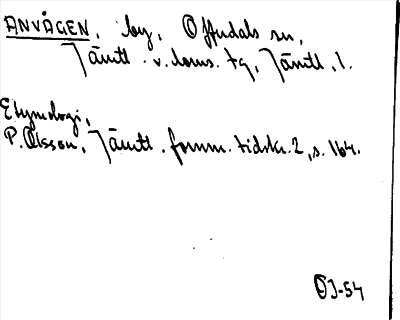 ANVÅGEN, by, Offerdals sn,
Jämtl. v. doms. tg, Jämtl. l.
Etymologi,
P. Olsson, Jämtl. fornm. tidskr. 2, s. 164.
OJ-54